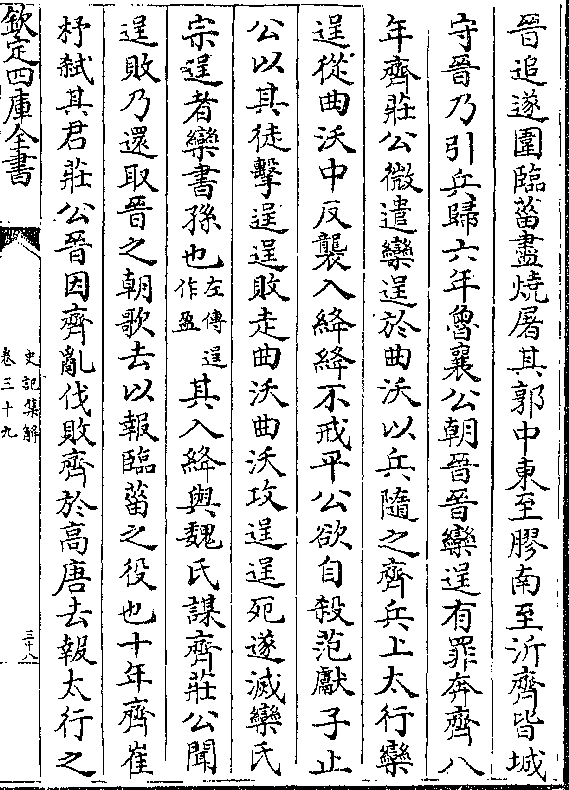 晉追遂圍臨菑盡燒屠其郭中東至膠南至沂齊皆城
守晉乃引兵歸六年魯襄公朝晉晉欒逞有罪奔齊八
年齊莊公微遣欒逞於曲沃以兵隨之齊兵上太行欒
逞從曲沃中反襲入絳絳不戒平公欲自殺范獻子止
公以其徒擊逞逞敗走曲沃曲沃攻逞逞死遂滅欒氏
宗逞者欒書孫也左傳逞作盈其入絳與魏氏謀齊莊公聞
逞敗乃還取晉之朝歌去以報臨菑之役也十年齊崔
杼弑其君莊公晉因齊亂伐敗齊於高唐去報太行之
欽定四庫全書
史記集解
卷三十九
三十八